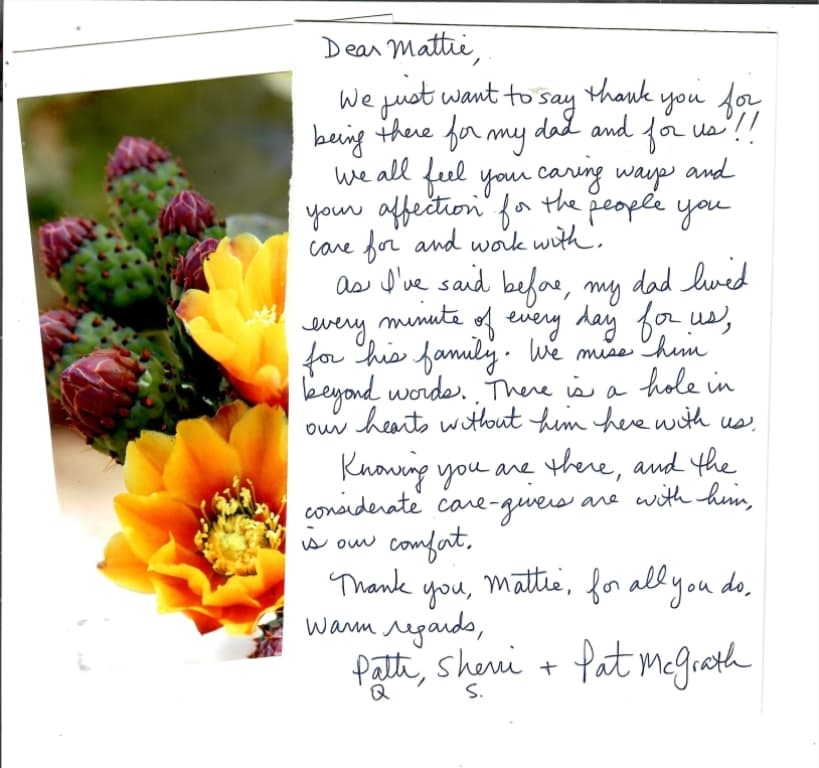 Dear Mattie,
We just want to say thank you for
being there for my dad and for us!!
We all feel your caring ways and
your affection for the people you
care for and work with.
As I've said before, my dad lived
every minute of every day for us,
for his family. We miss him
beyond words. There is a hole in
our hearts without him here with us.
Knowing you are there, and the
considerate care-givers are with him,
is our comfort.
Thank you, Mattie, for all you do.
Warm regards,
Patti, Sherri + Pat McGrath
Q S.